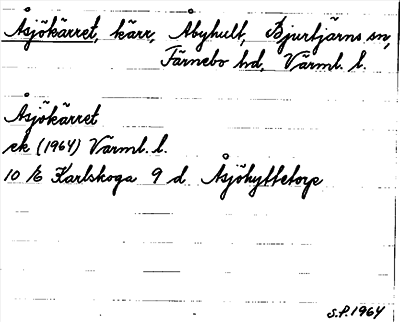 Åsjökärret, kärr, Åbyhult, Bjurtjärns sn,
Färnebo hd, Värml. l.
Åsjökärret
ek (1964) Värml. l.
10 16 Karlskoga 9 d Åsjöhyttetorp
S.P. 1964